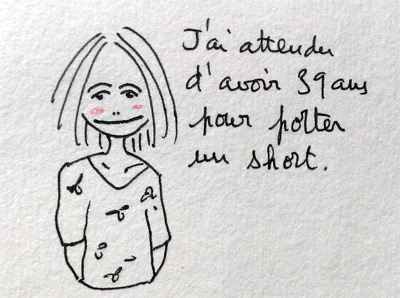 J'ai attendu
d'avoir 39 ans
pour porter
un short.